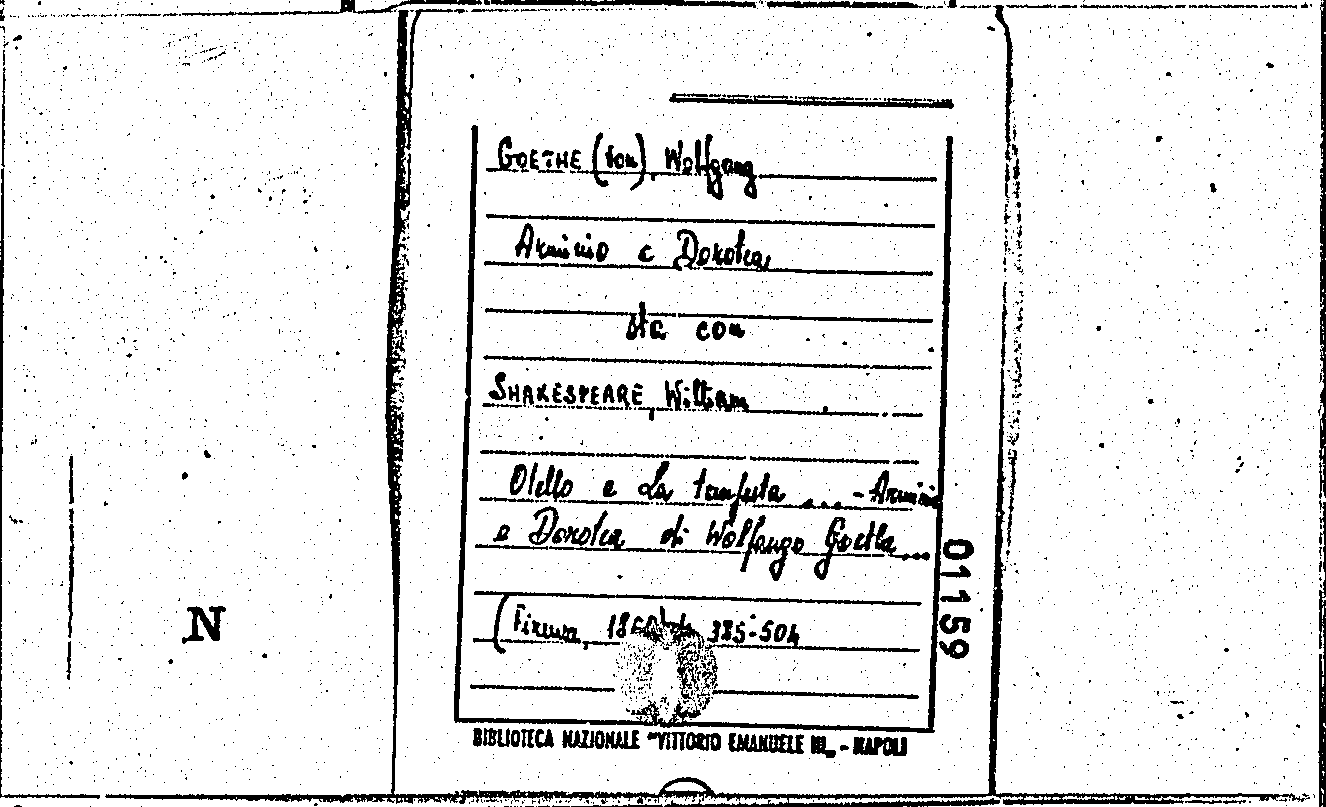 GOETHE (von), Wolfgang
Arminio e Dorotea
sta con
SHAKESPEARE, William
Otello e La tempesta ... - Arminio
e Dorotea di Wolfango Goethe...
(Firenze, 385-504
01159
N
BIBLIOTECA NAZIONALE "VITTORIO EMANUELE III„ - NAPOLI